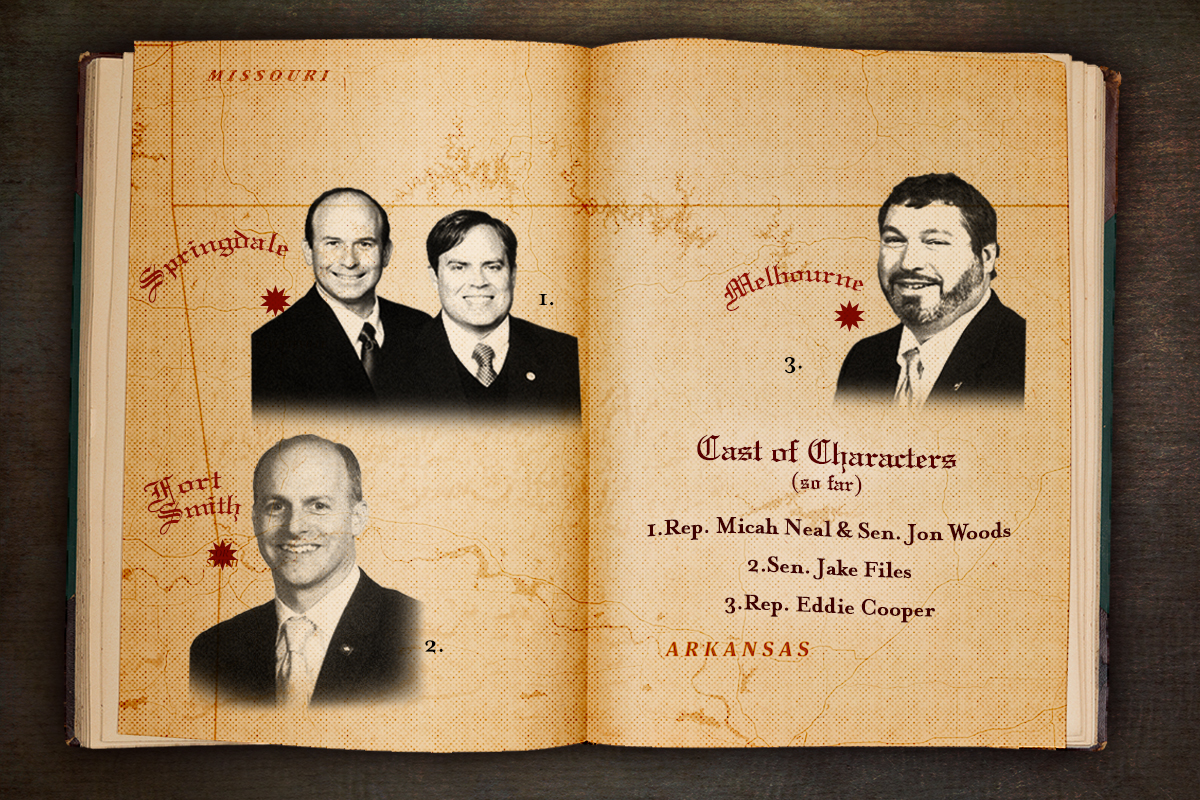 MISSOURI
Springdale
1.
Fort
Smith
2.
Melbourne
3.
Cast of Characters
(so far)
1.Rep. Micah Neal & Sen. Jon Woods
2.Sen. Jake Files
3.Rep. Eddie Cooper
ARKANSAS